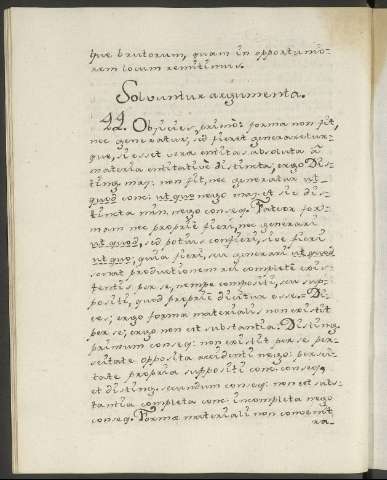 que brutorum, quam in opportunio-
rem locum remittimus.
Solvuntur argumenta.
22. Objicies, primo: forma non fit,
nec generatur, sed fieret generaretur-
que, si esset vera entitas absoluta à
materia entitative distincta; ergo Dis-
ting. maj: non fit, nec generatur ut
quod conc: ut quo nego maj. et sic dis-
tincta min. nego conseq. Fateor for-
mam nec proprie fieri, nec generari
ut quod, sed potius confieri, sive fieri
ut quo; quia fieri, seu generari ut quod
sonat productionem rei complete exis-
tentis per se, nempe compositi, seu sup-
positi, quod proprie dicitur esse. Di-
ces; ergo forma materialis non existit
per se; ergo non est substantia. Disting.
primum conseq: non existit per se per-
seitate opposita accidenti nego: persei-
tate propria suppositi conc: conseq.
et disting. secundum conseq: non est subs-
tantia completa conc: incompleta nego
conseq. Formæ materiali non convenit
ra-